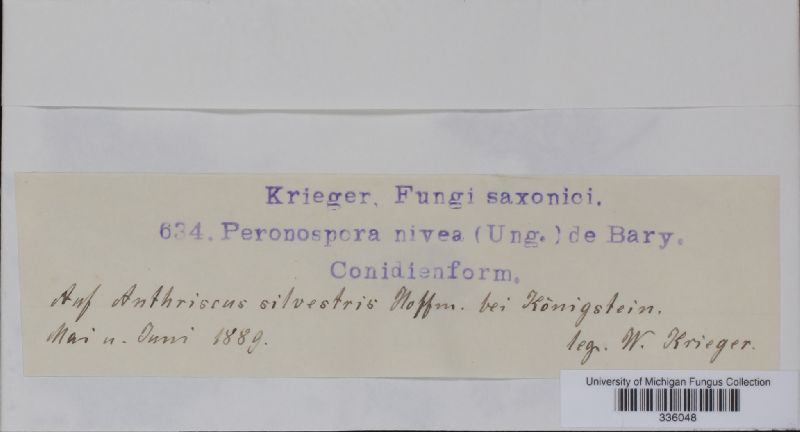 Krieger, Fungi saxonici.
634. Peronospora nivea (Ung.) de Bary.
Conidienform.
Auf Anthriscus silvestris Hoffm. bei Königstein.
Mai u. Juni 1889.
leg. W. Krieger.
University of Michigan Fungus Collection
336048